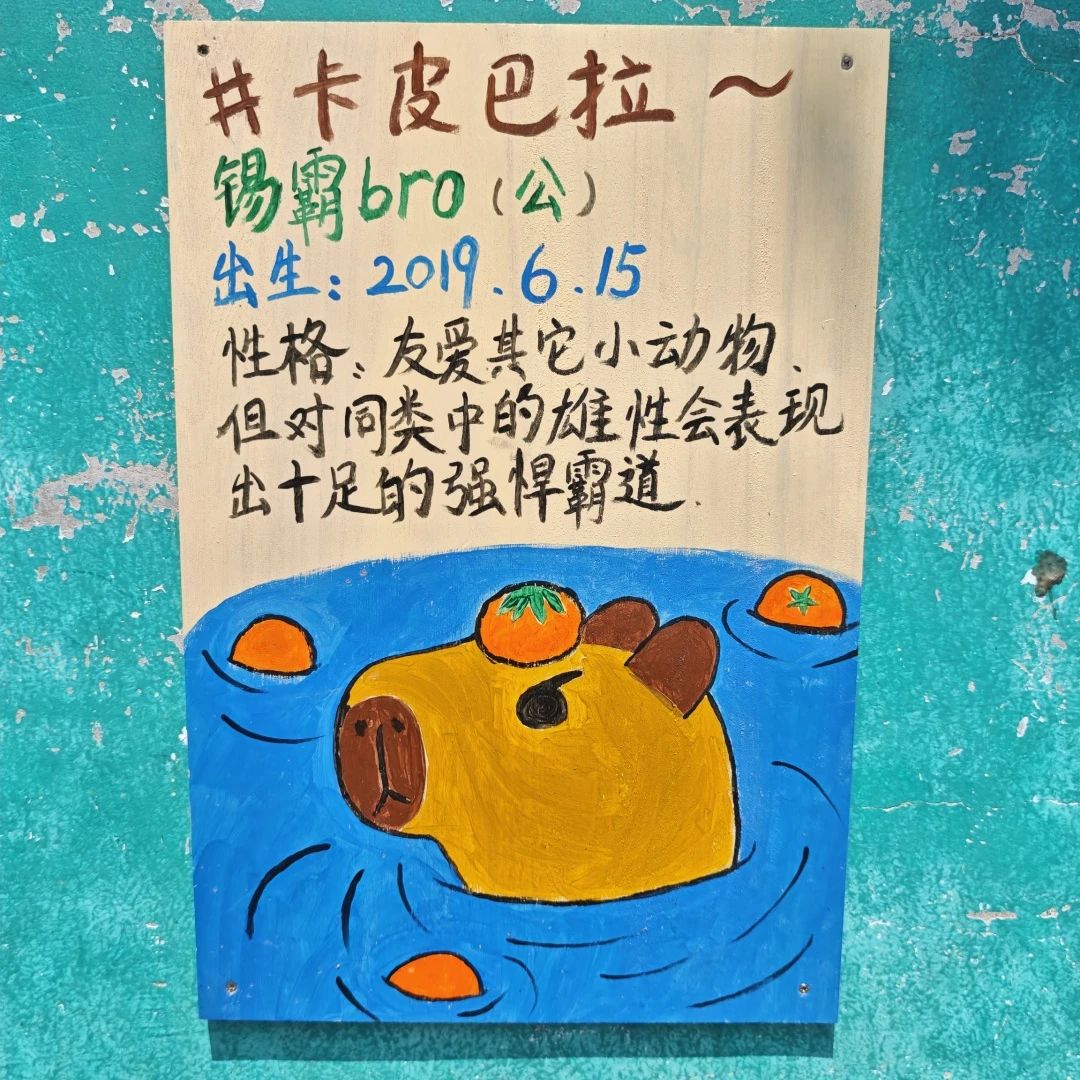 #卡皮巴拉～
锡霸bro（公）
出生：2019.6.15
性格：友爱其它小动物、
但对同类中的雄性会表现
出十足的强悍霸道.